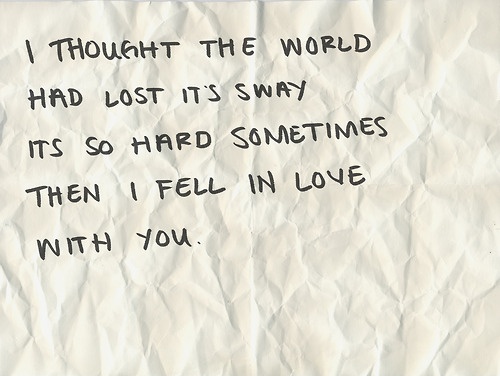 I THOUGHT THE WORLD
HAD LOST IT'S SWAY
ITS SO HARD SOMETIMES
THEN I FELL IN LOVE
WITH YOU.